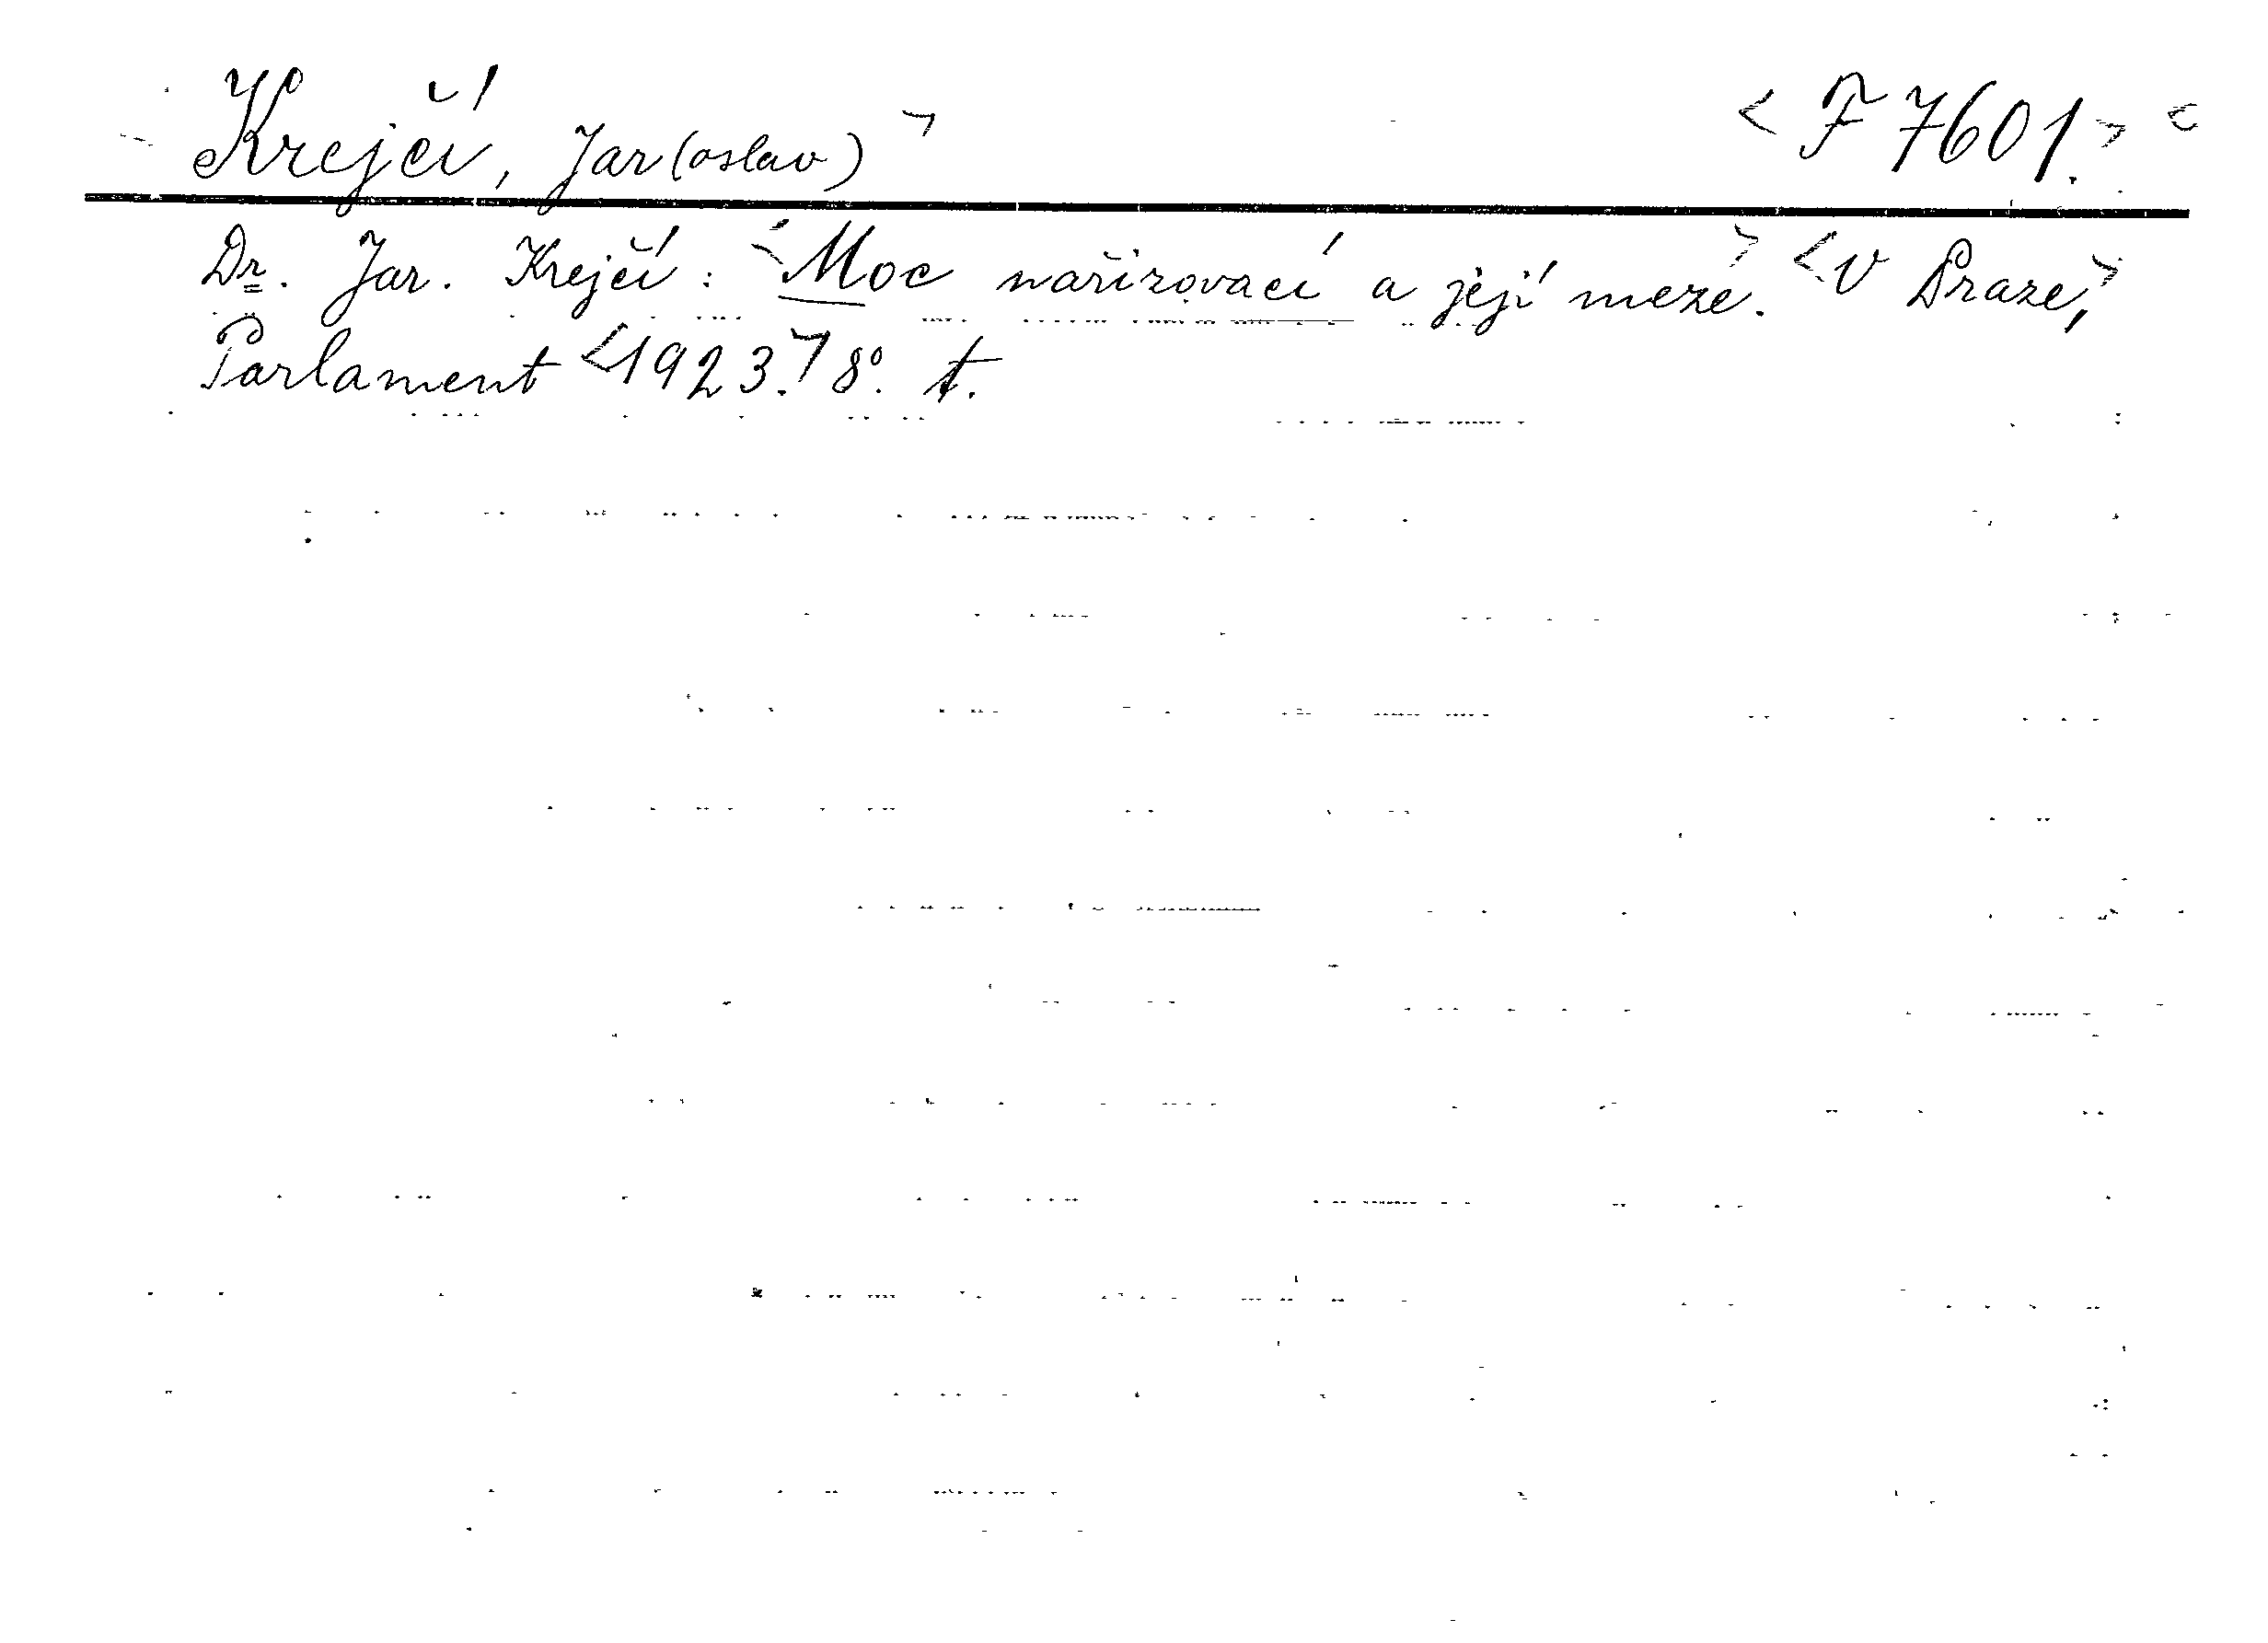 Krejčí, Jar(oslav) > < F 7601. >
Dr. Jar. Krejčí: <Moc nařizovací a její meze.> <V Praze,>
Parlament <1923.> 8º. t.